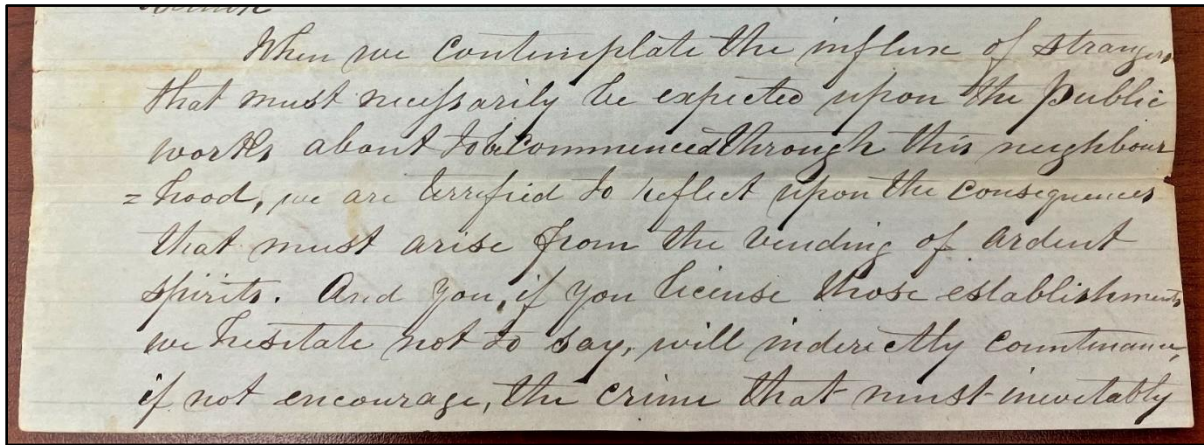 When we contemplate the influx of strangers
that must necessarily be expected upon the public
works about to be commenced through this neighbour
= hood, we are terrified to reflect upon the consequences
that must arise from the vending of ardent
spirits. And you, if you license those establishments
we hesitate not to say, will inderectly countenance,
if not encourage, the crime that must inevitably